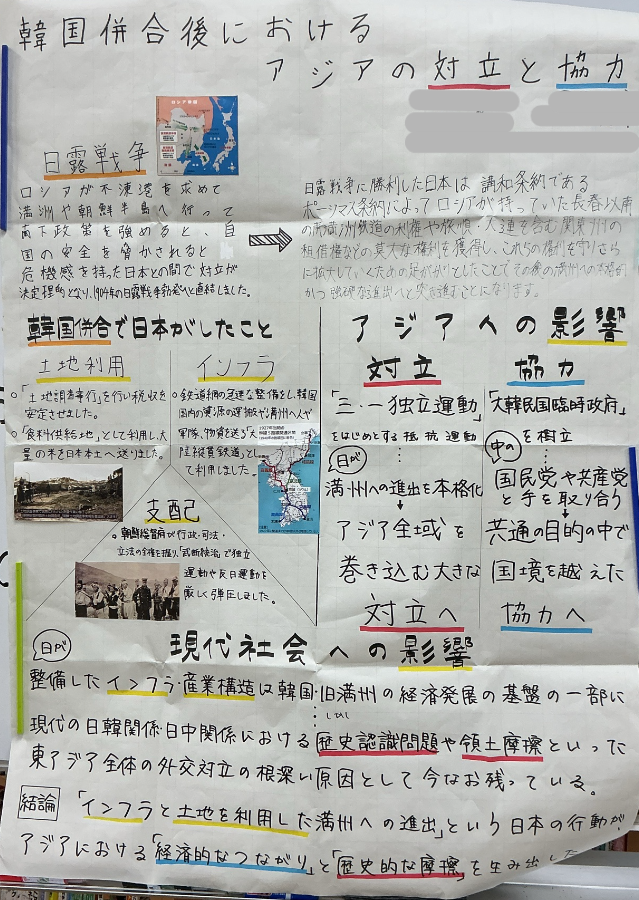 韓国併合後における
アジアの対立と協力
日露戦争
ロシアが不凍港を求めて
満洲や朝鮮半島へ行って
南下政策を強めると、自
国の安全を脅かされると
危機感を持った日本との間で対立が
決定理的となり、1904年の日露戦争勃発へと直結しました。
日露戦争に勝利した日本は 講和条約である
ポーツマス条約によってロシアが持っていた長春以南
の南満州鉄道の利権や旅順、大連を含む関東州の
租借権などの莫大な権利を獲得し、これらの権利を守りさら
に拡大していくための足がかりとしたことで その後の満州への本格的
かつ 強硬な進出へと突き進むことになります。
韓国併合で日本がしたこと
土地利用
「土地調査事行」を行い税収を
安定させました。
「食料供給地」として利用し大
量の米を日本本土へ送りました。
インフラ
鉄道網の急速な整備をし、韓国
国内の資源の運搬や満州へ人や
軍隊、物資を送る「大
陸縦貫鉄道」とし
て利用しました。
支配
朝鮮総督府が行政・司法・
立法の全権を握り、「武断統治」で独立
運動や反日運動を
厳しく弾圧しました。
アジアへの影響
対立
「三・一独立運動」
をはじめとする抵抗運動
日が
満州への進出を本格化
アジア全域を
巻き込む大きな
対立へ
協力
「大韓民国臨時政府」
を樹立
中の
国民党や共産党
と手を取り合う
共通の目的の中で
国境を越えた
協力へ
現代社会への影響
日が
整備したインフラ・産業構造は韓国・旧満州の経済発展の基盤の一部に
しかし
現代の日韓関係・日中関係における歴史認識問題や領土摩擦といった
東アジア全体の外交対立の根深い原因として今なお残っている。
結論
「インフラと土地を利用した満州への進出」という日本の行動が、
アジアにおける「経済的なつながり」と「歴史的な摩擦」を生み出した